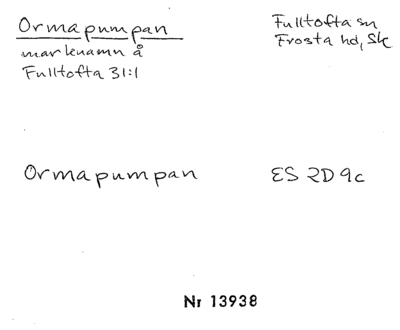 Ormapumpan
marknamn å
Fulltofta 31:1
Fulltofta sn
Frosta hd, Sk
Ormapumpan
ES 2D 9c
Nr 13938